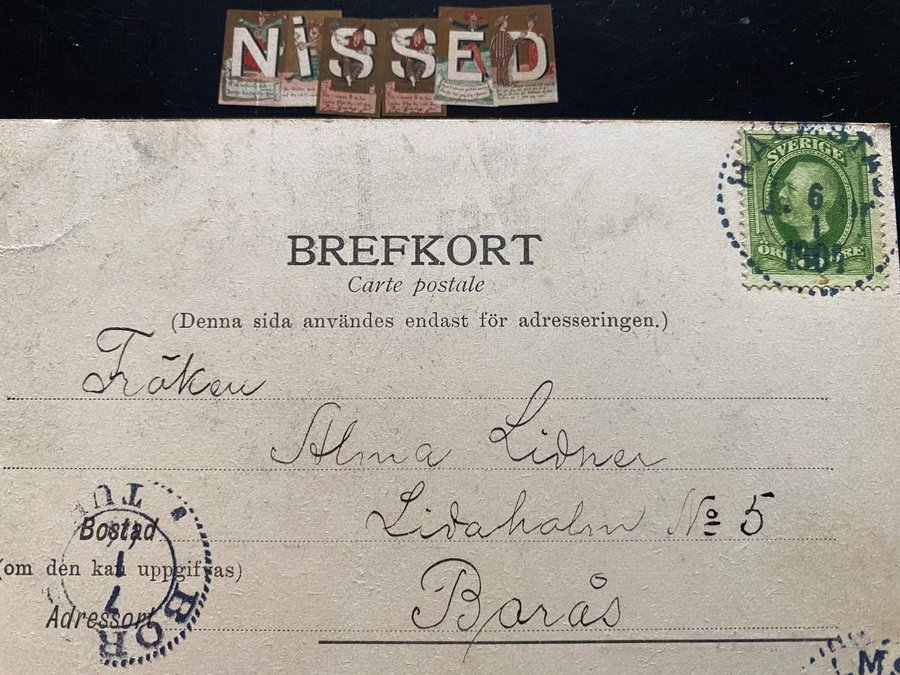 NiSSED
SVERIGE
6
1
BREFKORT
Carte postale
(Denna sida användes endast för adresseringen.)
Fröken
Alma Lidner
Lidaholm No 5
Borås
Bostad
(om den kan uppgifvas)
Adressort
1
7
BOR